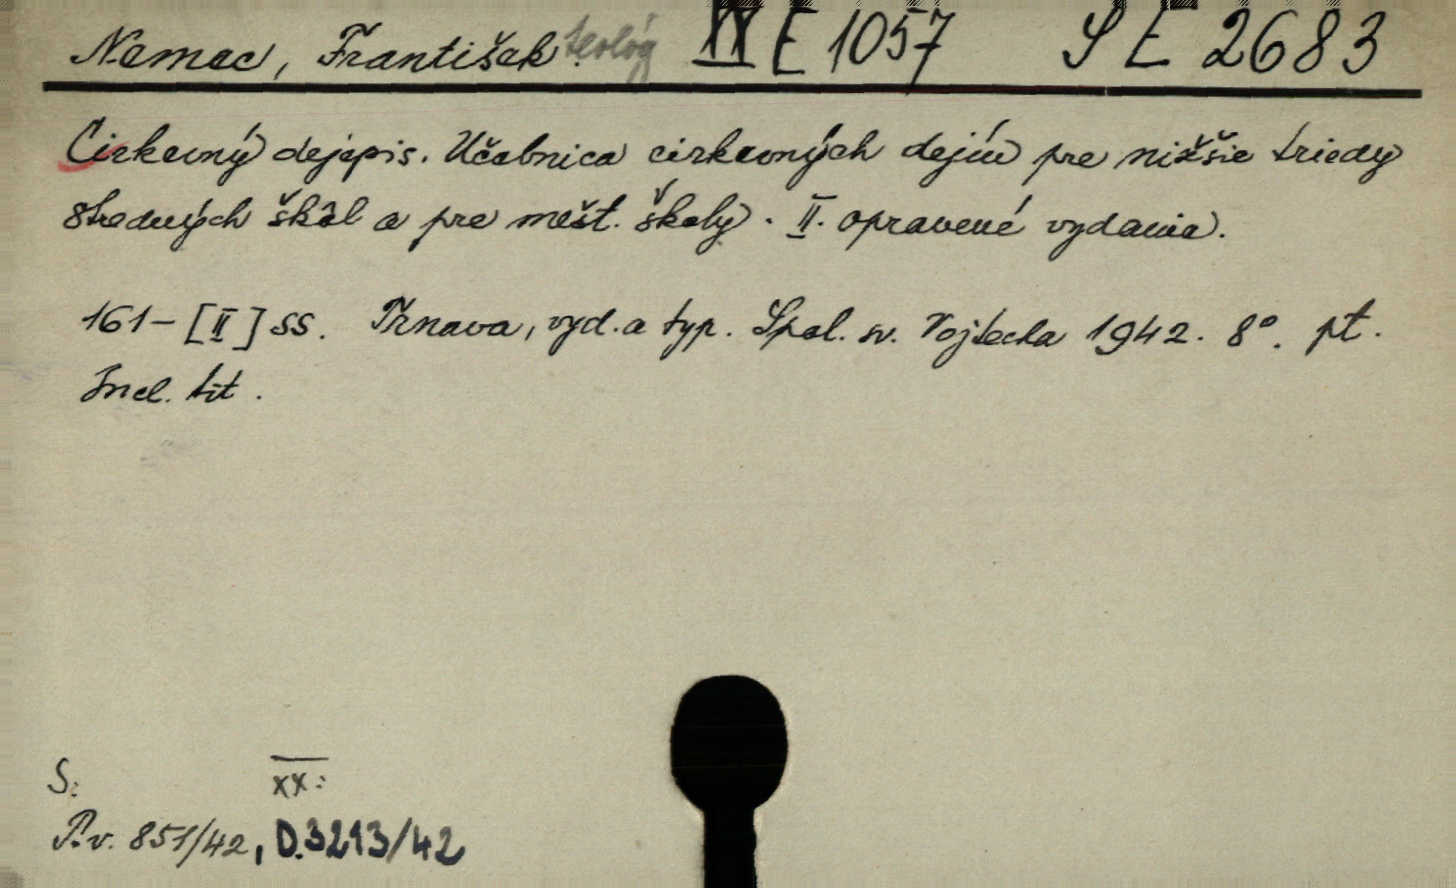 Nemec, František. teológ XX E 1057 S E 2683
Cirkevný dejepis. Učebnica cirkevných dejín pre nižšie triedy
stredných škôl a pre mešt. školy. II. opravené vydanie.
161-[II] ss. Trnava, vyd. a typ. Spol. sv. Vojtecha 1942. 8°. pt.
Incl. tit.
S: XX:
P.v. 851/42, D.3213/42